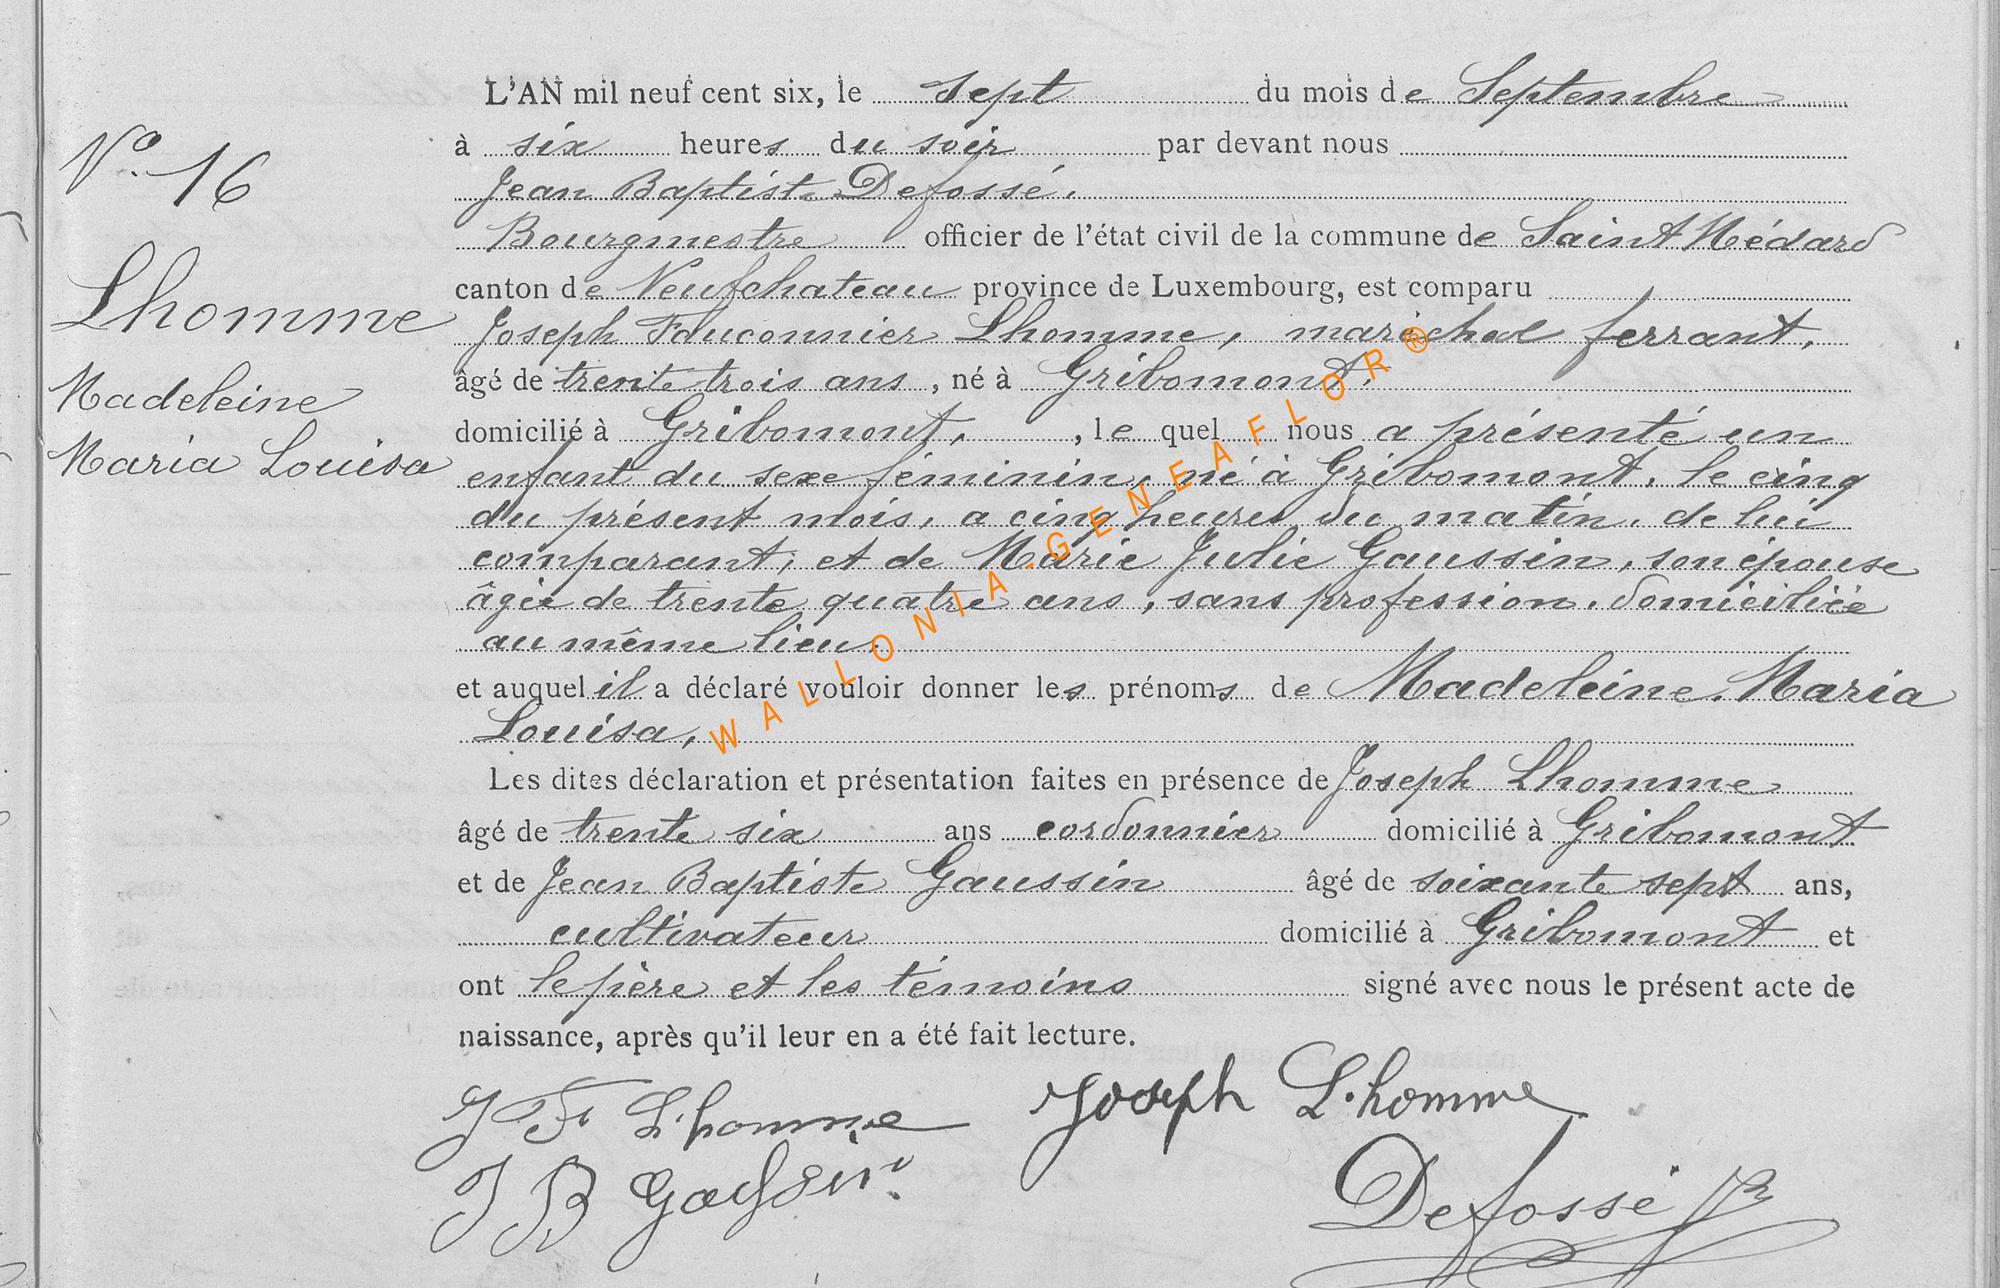 L'AN mil neuf cent six, le sept du mois de Septembre
à six heures du soir par devant nous
Jean Baptiste Defossé.
Bourgmestre officier de l'état civil de la commune de Saint Médard
canton de Neufchateau province de Luxembourg, est comparu
Joseph Fauconnier Lhomme, maréchal ferrant,
âgé de trente trois ans, né à Gribomont,
domicilié à Gribomont, , le quel nous a présenté un
enfant du sexe féminin, né à Gribomont, le cinq
du présent mois, a cinq heures du matin, de lui
comparant, et de Marie Julie Gaussin, son épouse
âgée de trente quatre ans, sans profession, domiciliée
au même lieu.
et auquel il a déclaré vouloir donner les prénoms de Madeleine, Maria
Louisa,
Les dites déclaration et présentation faites en présence de Joseph Lhomme
âgé de trente six ans cordonnier domicilié à Gribomont
et de Jean Baptiste Gaussin âgé de soixante sept ans,
cultivateur domicilié à Gribomont et
ont le père et les témoins signé avec nous le présent acte de
naissance, après qu'il leur en a été fait lecture.
J F L'homme Joseph L.homme
J B Gaussin
Defossé JB
No. 16
Lhomme
Madeleine
Maria Louisa
WALLONIA-GENEAFLOR®